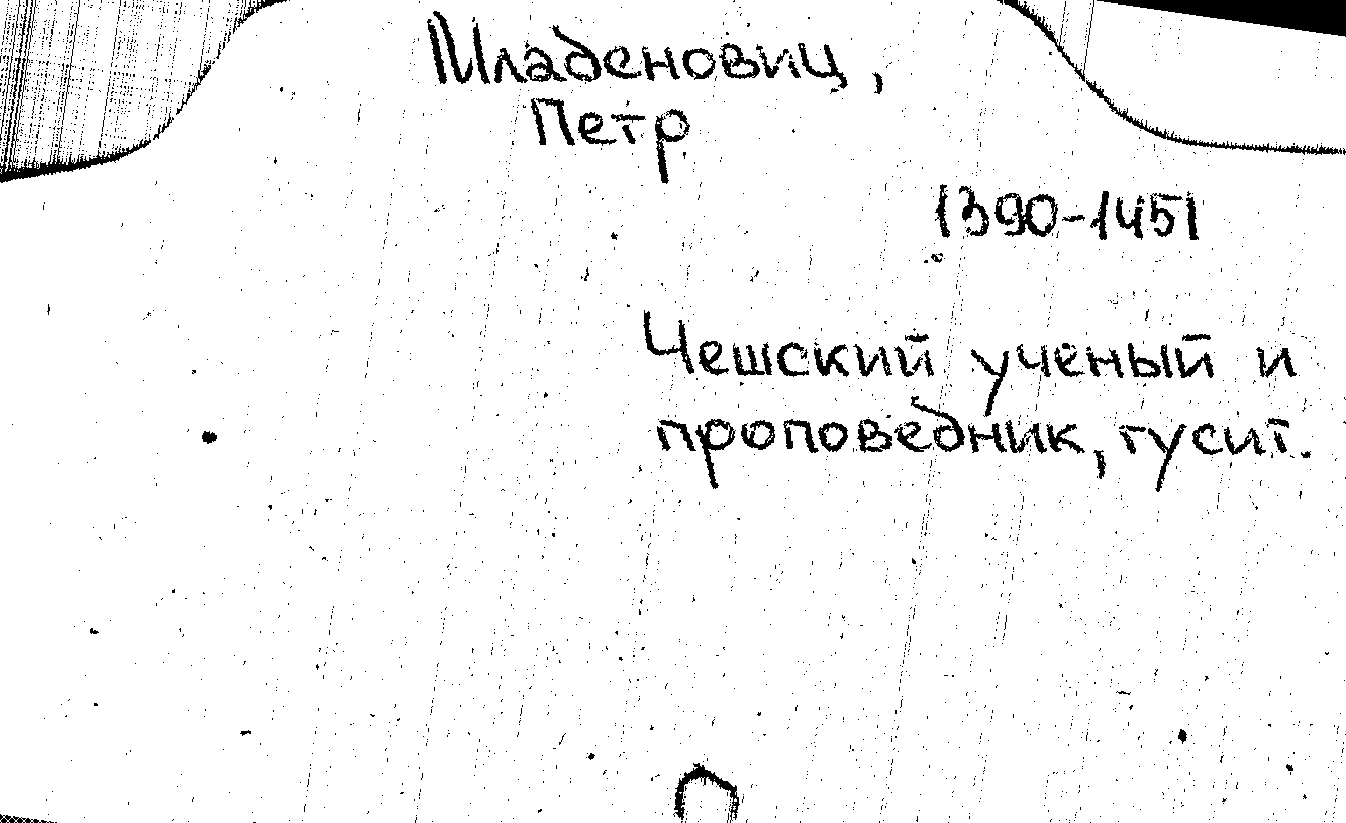 Младеновиц,
Петр
1390-1451
Чешский ученый и
проповедник, гусит.